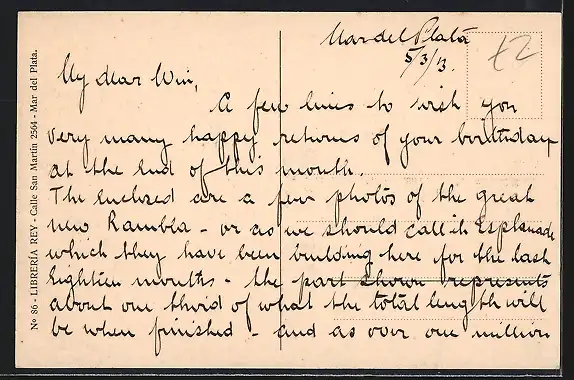 Mar del Plata
5/3/13.
£2
My dear Win,
A few lines to wish you
very many happy returns of your birthday
at the end of this month.
The enclosed are a few photos of the great
new Rambla - or as we should call it Esplanade
which they have been building here for the last
Eighteen months - the part shown represents
about one third of what the total length will
be when finished - and as over one million
Nº 86 - LIBRERÍA REY - Calle San Martin 2564 - Mar del Plata.